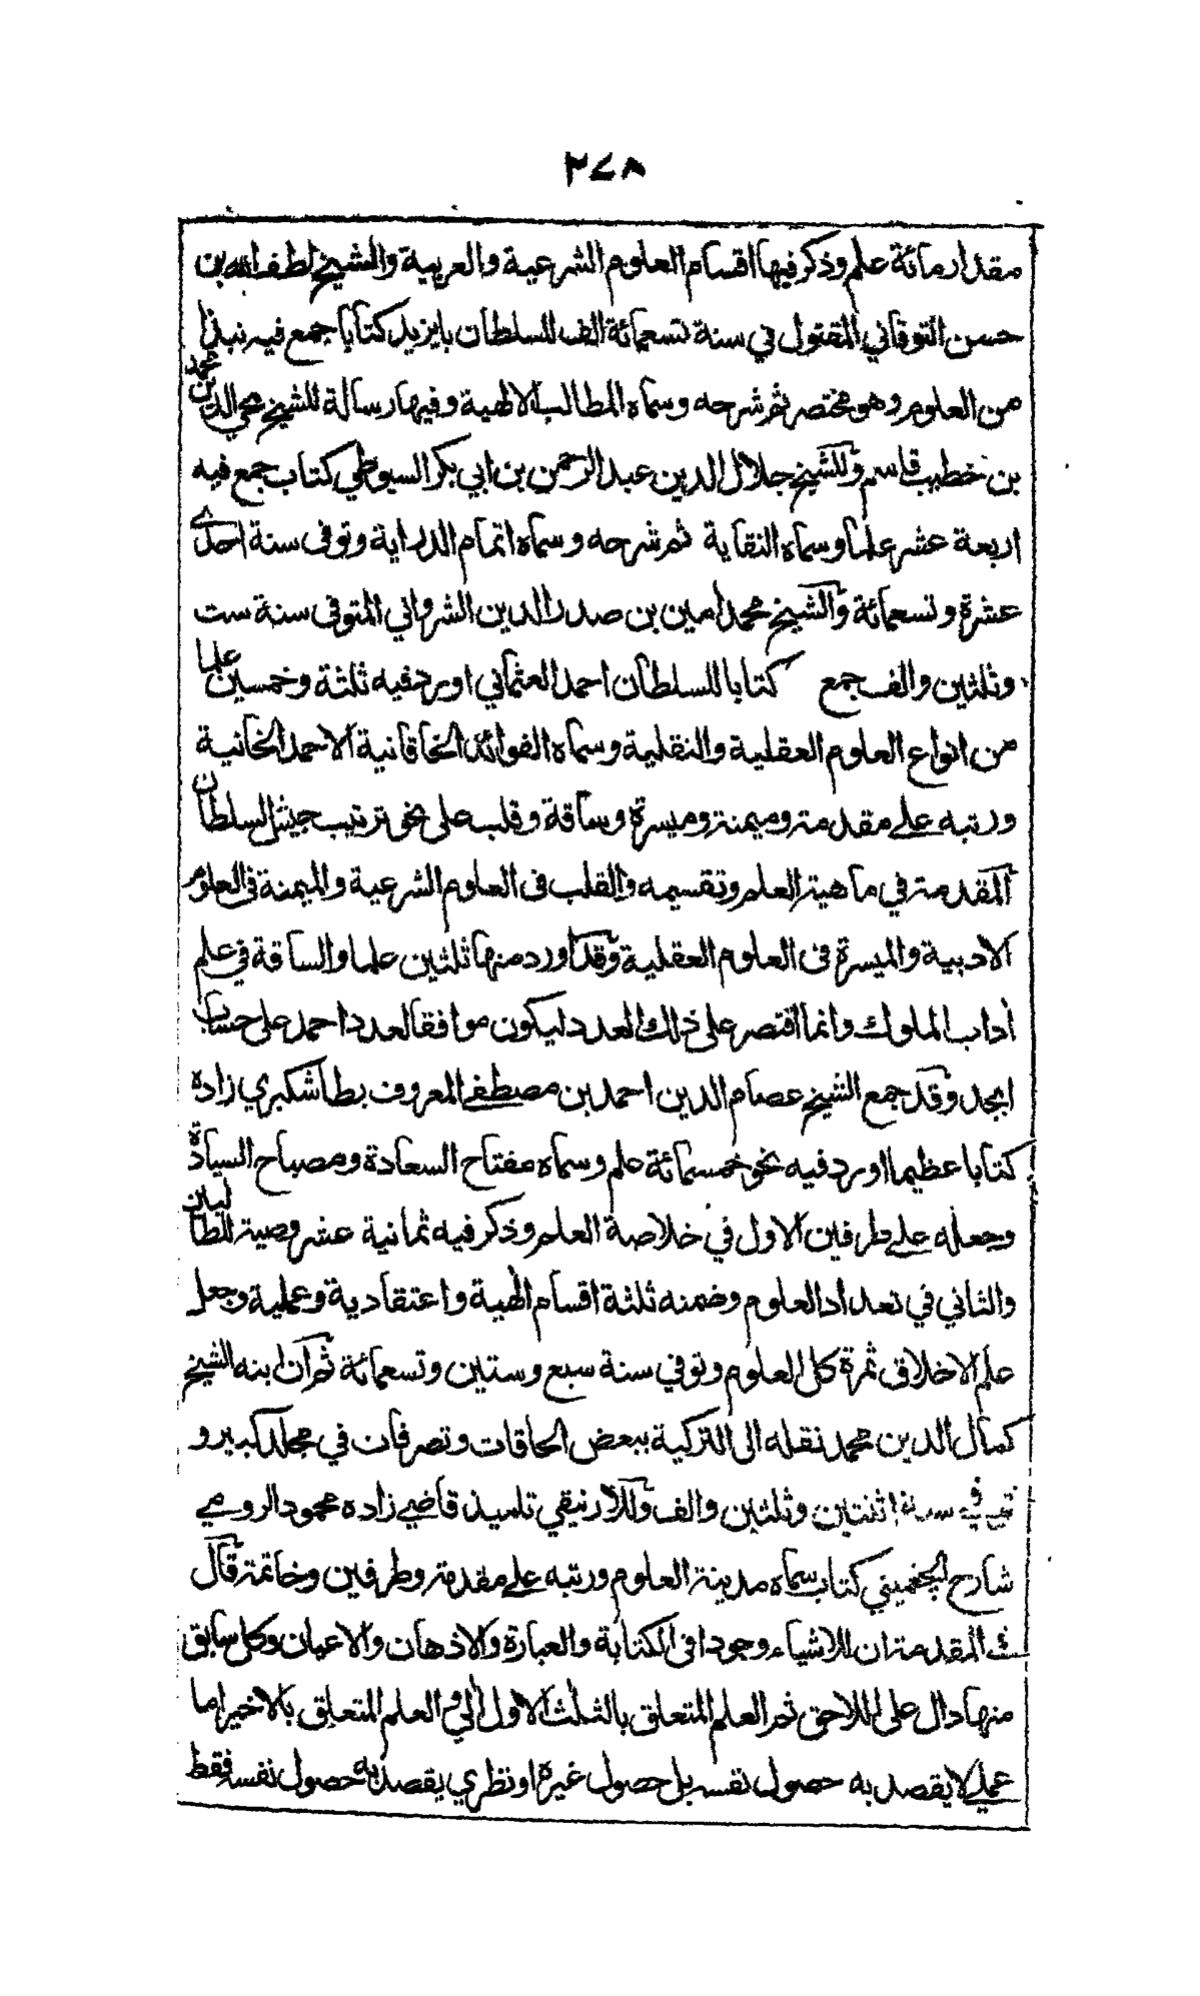 ٢٧٨
مقدار مائة علم وذكر فيها اقسام العلوم الشرعية والعربية والشيخ لطف الله بن
حسن التوقاتي المقتول في سنة تسعمائة الف للسلطان بايزيد كتابا جمع فيه نبذا
من العلوم وهو مختصر ثم شرحه وسماه المطالب الالهية وفيها رسالة للشيخ محي الدين محمد
بن خطيب قاسم وللشيخ جلال الدين عبد الرحمن بن ابي بكر السيوطي كتاب جمع فيه
اربعة عشر علما وسماه النقاية ثم شرحه وسماه اتمام الدراية وتوفى سنة احدى
عشرة وتسعمائة والشيخ محمد امين بن صدر الدين الشرواني المتوفى سنة ست
وثلثين والف جمع كتابا للسلطان احمد العثماني اورد فيه ثلثة وخمسين علما
من انواع العلوم العقلية والنقلية وسماه الفوائد الخاقانية الاحمد الخانية
ورتبه على مقدمة وميمنة وميسرة وساقة وقلب على نحو ترتيب جيش السلطان
المقدمة في ماهية العلم وتقسيمه والقلب فى العلوم الشرعية والميمنة فى العلوم
الادبية والميسرة فى العلوم العقلية وقد اورد منها ثلثين علما والساقة في علم
آداب الملوك وانما اقتصر على ذلك العدد ليكون موافقا لعدد احمد على حساب
ابجد وقد جمع الشيخ عصام الدين احمد بن مصطفى المعروف بطاشكبري زاده
كتابا عظيما اورد فيه نحو خمسمائة علم وسماه مفتاح السعادة ومصباح السيادة
وجعله على طرفين الاول في خلاصة العلم وذكر فيه ثمانية عشر وصية للطالبان
والثاني في تعداد العلوم وضمنه ثلثة اقسام الهية واعتقادية وعملية وجعل
علم الاخلاق ثمرة كل العلوم وتوفي سنة سبع وستين وتسعمائة ثم ان ابنه الشيخ
كمال الدين محمد نقله الى التركية ببعض الحاقات وتصرفات في مجلد كبير و
توفي في سنة اثنتين وثلثين والف وللارنيقي تلميذ قاضي زاده محمود الرومي
شارح الچغميني كتاب سماه مدينة العلوم ورتبه على مقدمة وطرفين وخاتمة قال
ف المقدمة ان للاشياء وجودا فى الكتابة والعبارة والاذهان والاعيان وكل سابق
منها دال على اللاحق ثم العلم المتعلق بالثلث الاول آلي والعلم المتعلق بالاخير اما
عملي لا يقصد به حصول نفسه بل حصول غيرة او نظري يقصد به حصول نفسه فقط